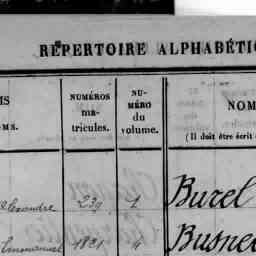 RÉPERTOIRE ALPHABÉTI
MS
NUMÉROS
ma-
tricules.
NU-
MÉRO
du
volume.
NOM
OMS.
(Il doit être écrit
Alexandre 239 1 Burel
Emmanuel 1821 4 Busne